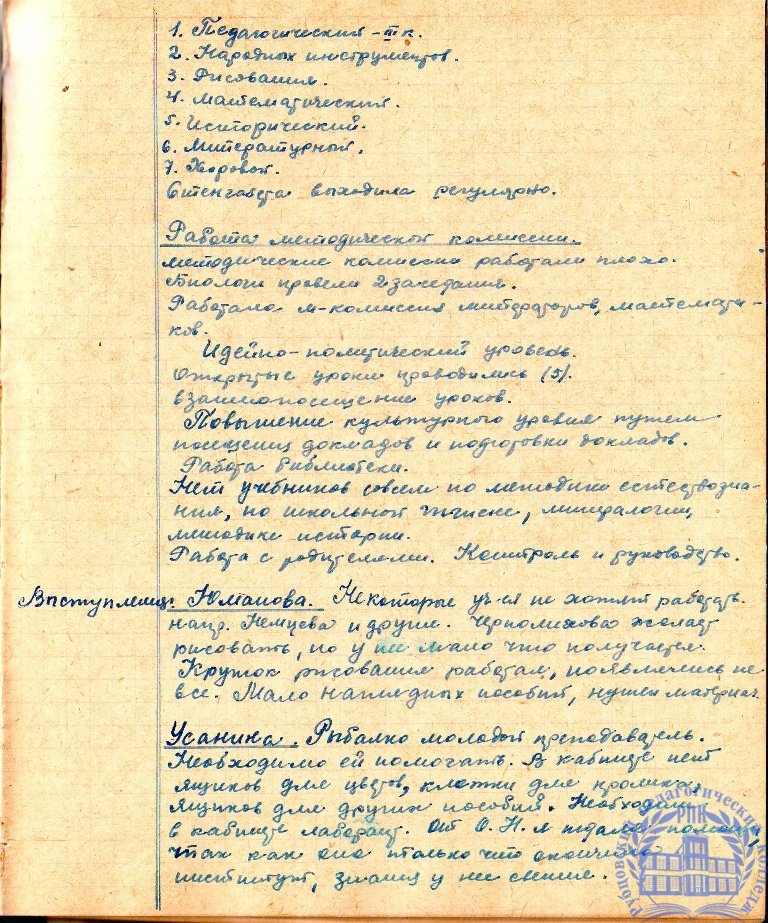 1. Педагогический - III к.
2. Народных инструментов.
3. Рисования.
4. Математический.
5. Исторический.
6. Литературный.
7. Хоровой.
Стенгазета выходила регулярно.
Работа методической комиссии.
Методические комиссии работали плохо.
Биологи провели 2 заседания.
Работала м-комиссия литераторов, математи-
ков.
Идейно-политический уровень.
Открытые уроки проводились (5).
взаимопосещение уроков.
Повышение культурного уровня путем
посещения докладов и подготовки докладов.
Работа библиотеки.
Нет учебников совсем по методике естествозна-
ния, по школьной гигиене, минералогии,
методике истории.
Работа с родителями. Контроль и руководство.
Выступления: Юманова. Некоторые уч-ся не хотят работать.
напр. Немцева и другие. желает
рисовать, но у нее мало что получается.
Кружок рисования работал, появлялись не
все. Мало наглядных пособий, нужен материал.
Усанина. Рыбалко молодой преподаватель.
Необходимо ей помогать. В кабинете нет
ящиков для цветов, клетки для кролика,
ящиков для других пособий. Необходим
в кабинете лаборант. От О.Н. я ждала помощи,
так как она только что окончила
институт, знания у нее свежие.
Рубцовский педагогический колледж
РПК